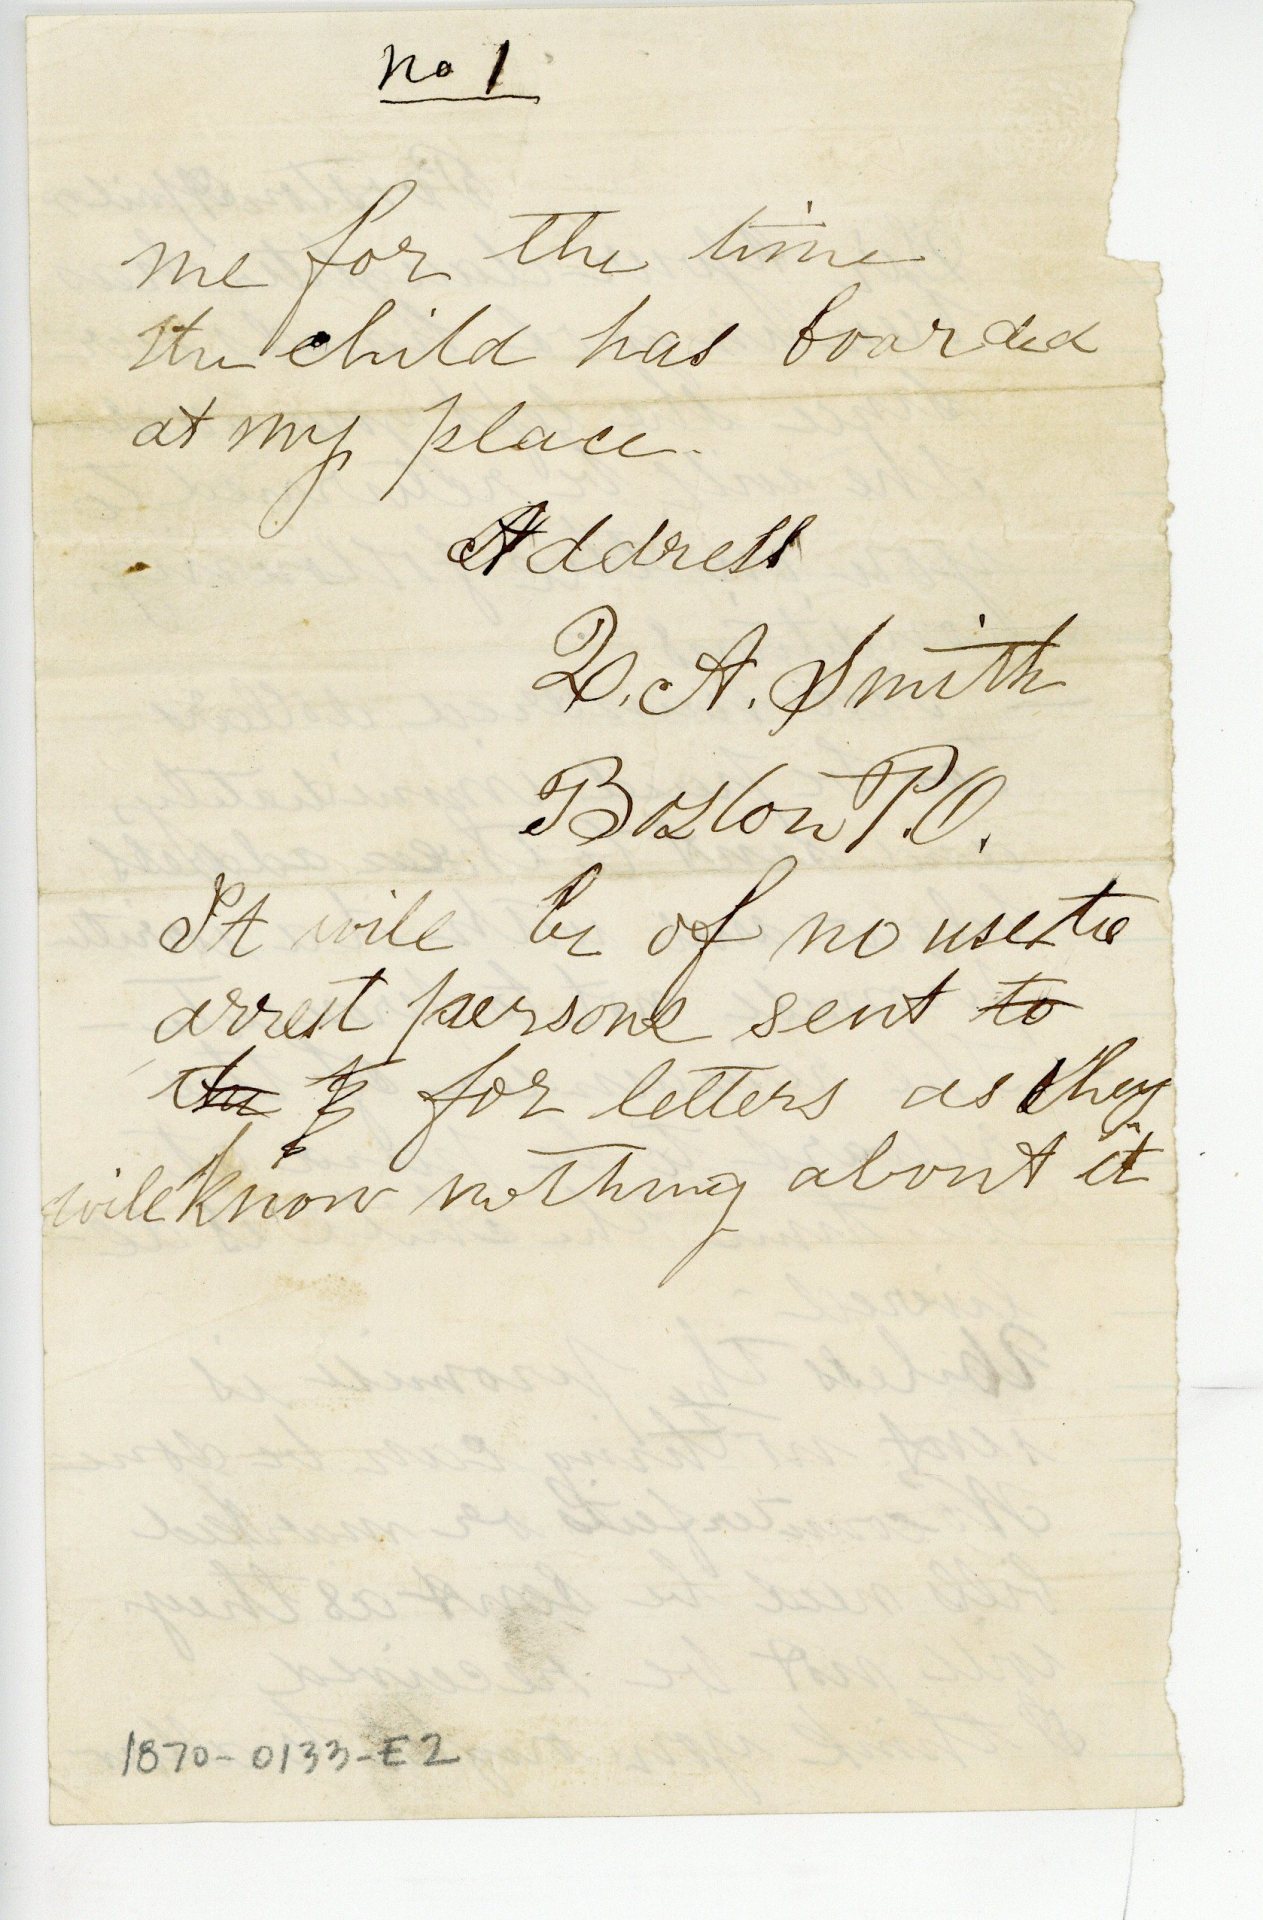 No 1
me for the time
the child has boarded
at my place.
Address
A. Smith
Boston P.O.
It will be of no use to
arrest persons sent to
the for letters as they
will know nothing about it
1870-0133-E2